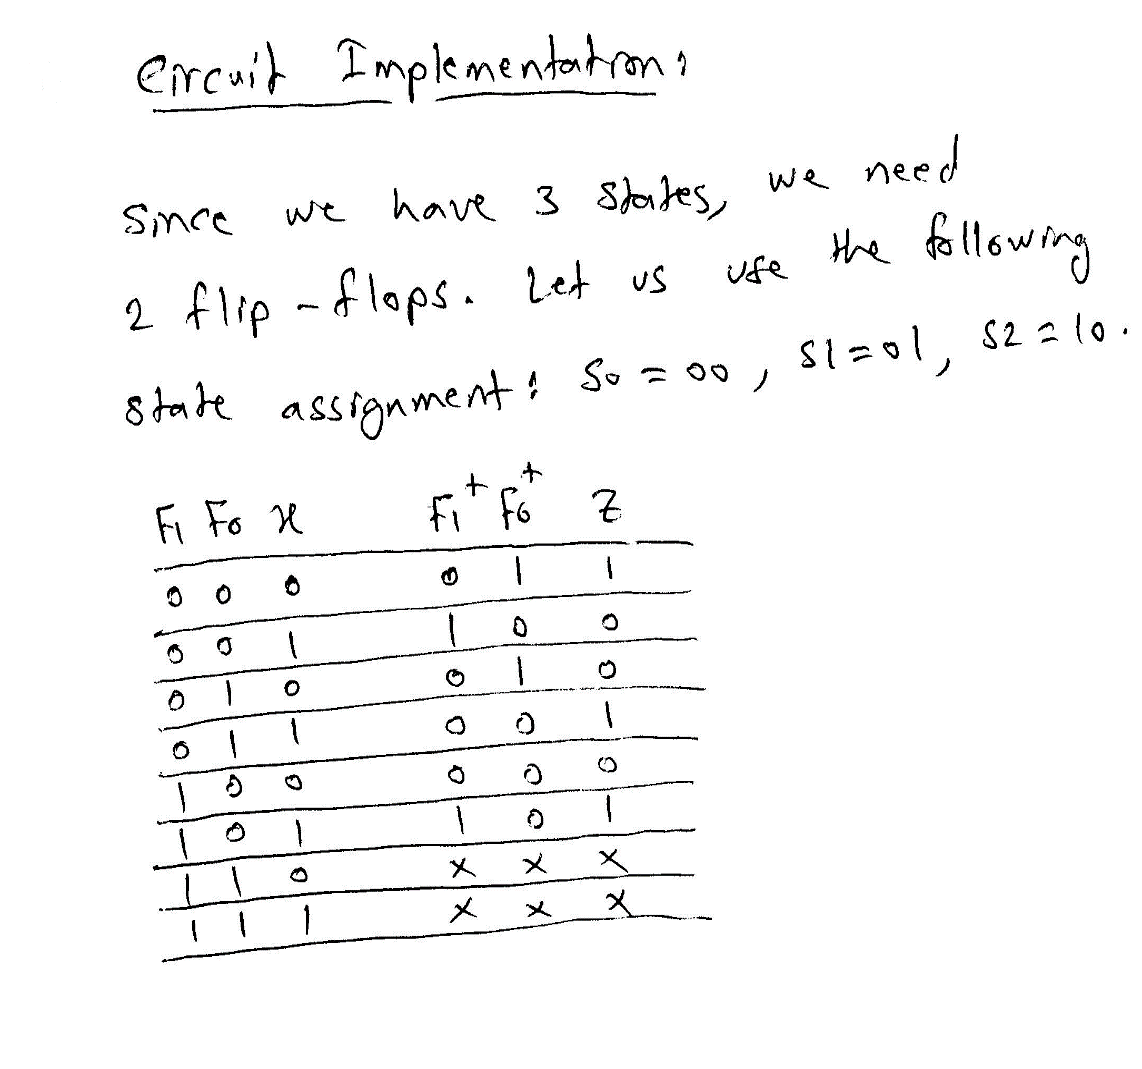 Circuit Implementation:
Since we have 3 states, we need
2 flip-flops. Let us use the following
state assignment: S0 = 00, S1 = 01, S2 = 10.
F1 F0 x F1+ F0+ Z
0 0 0 0 1 1
0 0 1 1 0 0
0 1 0 0 1 0
0 1 1 0 0 1
1 0 0 0 0 0
1 0 1 1 0 1
1 1 0 x x x
1 1 1 x x x